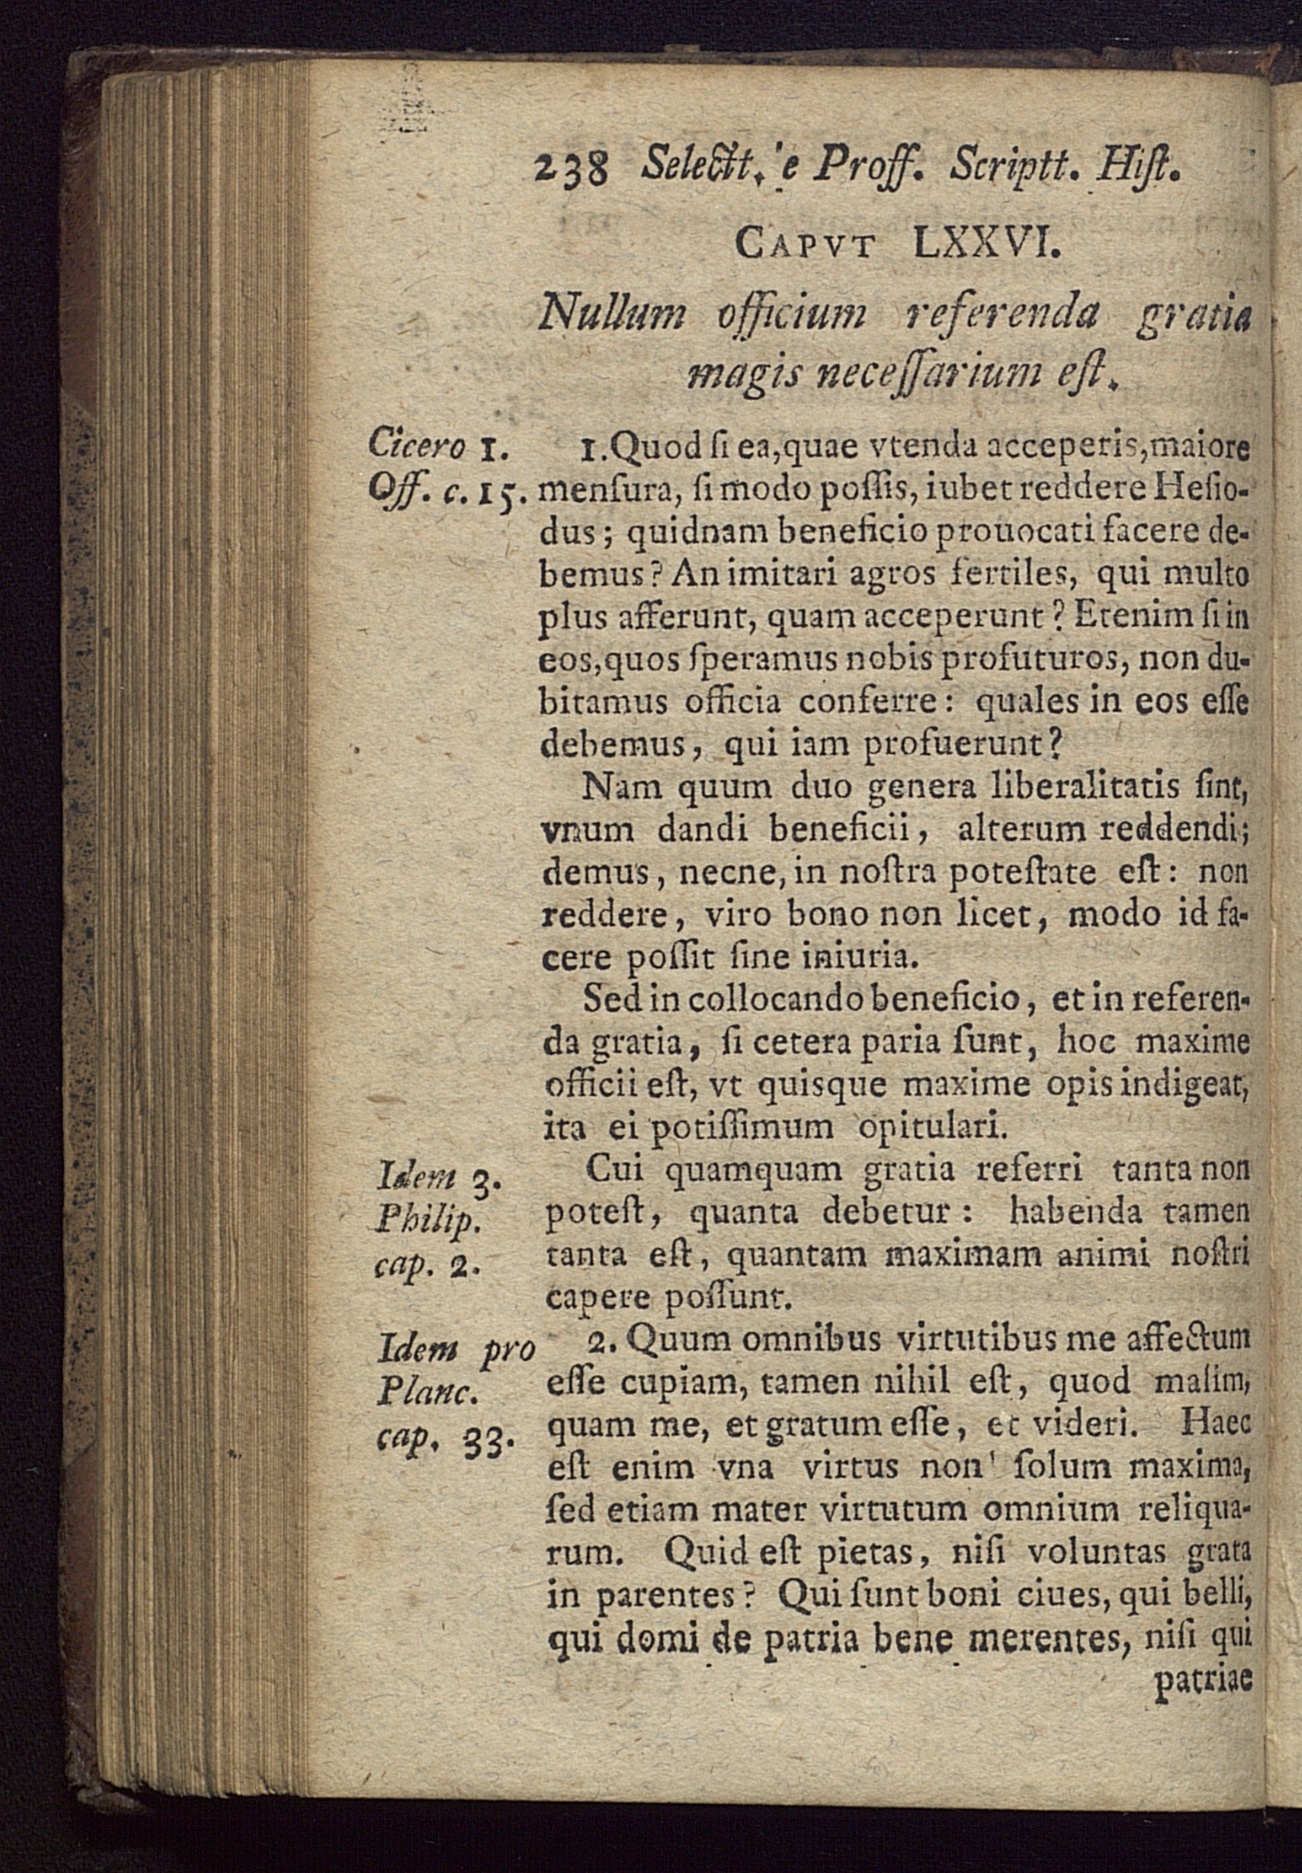 238 Selectt. e Proff. Scriptt. Hiſt.
CAPVT LXXVI.
Nullum officium referenda gratia
magis neceſſarium eſt.
Cicero 1.
Off. c. 15.
1. Quod ſi ea, quae vtenda acceperis, maiore
menſura, ſi modo poſſis, iubet reddere Heſio-
dus; quidnam beneficio prouocati facere de-
bemus? An imitari agros fertiles, qui multo
plus afferunt, quam acceperunt? Etenim ſi in
eos, quos ſperamus nobis profuturos, non du-
bitamus officia conferre: quales in eos eſſe
debemus, qui iam profuerunt?
Nam quum duo genera liberalitatis ſint,
vnum dandi beneficii, alterum reddendi;
demus, necne, in noſtra poteſtate eſt: non
reddere, viro bono non licet, modo id fa-
cere poſſit ſine iniuria.
Sed in collocando beneficio, et in referen-
da gratia, ſi cetera paria ſunt, hoc maxime
officii eſt, vt quisque maxime opis indigeat,
ita ei potiſſimum opitulari.
Idem 3.
Philip.
cap. 2.
Cui quamquam gratia referri tanta non
poteſt, quanta debetur: habenda tamen
tanta eſt, quantam maximam animi noſtri
capere poſſunt.
Idem pro
Planc.
cap. 33.
2. Quum omnibus virtutibus me affectum
eſſe cupiam, tamen nihil eſt, quod malim,
quam me, et gratum eſſe, et videri. Haec
eſt enim vna virtus non ſolum maxima,
ſed etiam mater virtutum omnium reliqua-
rum. Quid eſt pietas, niſi voluntas grata
in parentes? Qui ſunt boni ciues, qui belli,
qui domi de patria bene merentes, niſi qui
patriae